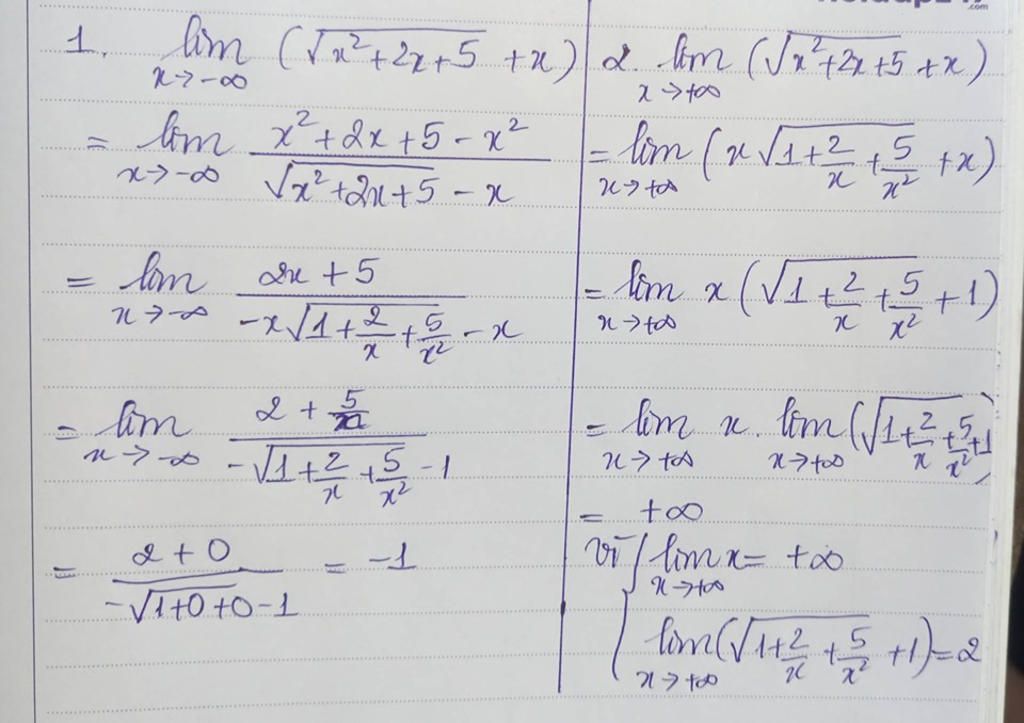 1. lim x→-∞ (√(x²+2x+5) + x)
= lim x→-∞ (x²+2x+5-x²)/(√(x²+2x+5) - x)
= lim x→-∞ (2x+5)/(-x√(1+2/x+5/x²) - x)
= lim x→-∞ (2+5/x)/(-√(1+2/x+5/x²) - 1)
= (2+0)/(-√(1+0+0)-1) = -1
2. lim x→+∞ (√(x²+2x+5) + x)
= lim x→+∞ (x√(1+2/x+5/x²) + x)
= lim x→+∞ x(√(1+2/x+5/x²) + 1)
= lim x→+∞ x. lim x→+∞ (√(1+2/x+5/x²)+1)
= +∞
vì { lim x→+∞ x = +∞
lim x→+∞ (√(1+2/x+5/x²) + 1) = 2